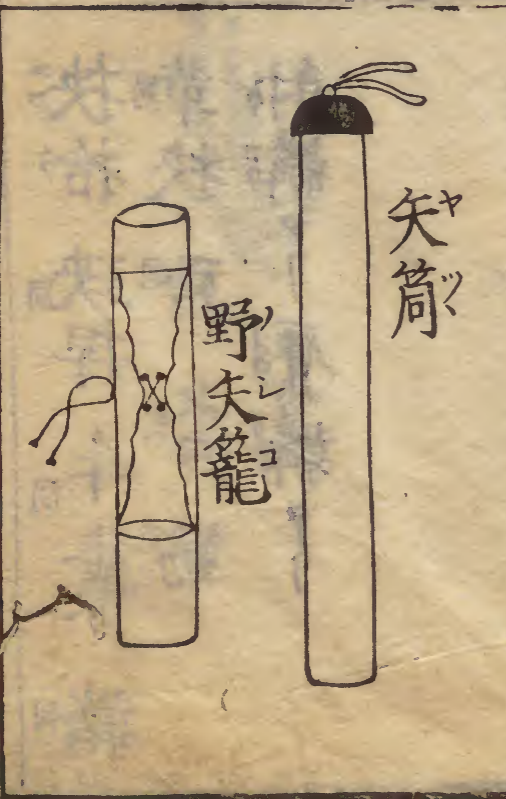 矢筒
ヤツヽ
野矢籠
ノシコ